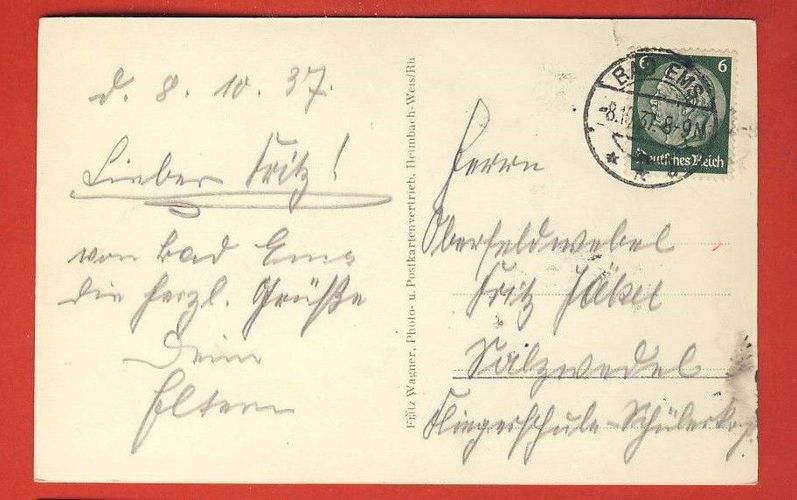 d. 8. 10. 37.
Lieber Fritz!
von Bad Ems
die herzl. Grüße
Deine
Eltern
Fritz Wagner, Photo- u. Postkartenvertrieb, Heimbach-Weis/Rh
6 6
Deutsches Reich
BAD EMS
-8.10.37.-8-9N
Herrn
Oberfeldwebel
Fritz Jäkel
Salzwedel
Fliegerschule-Schülerkp